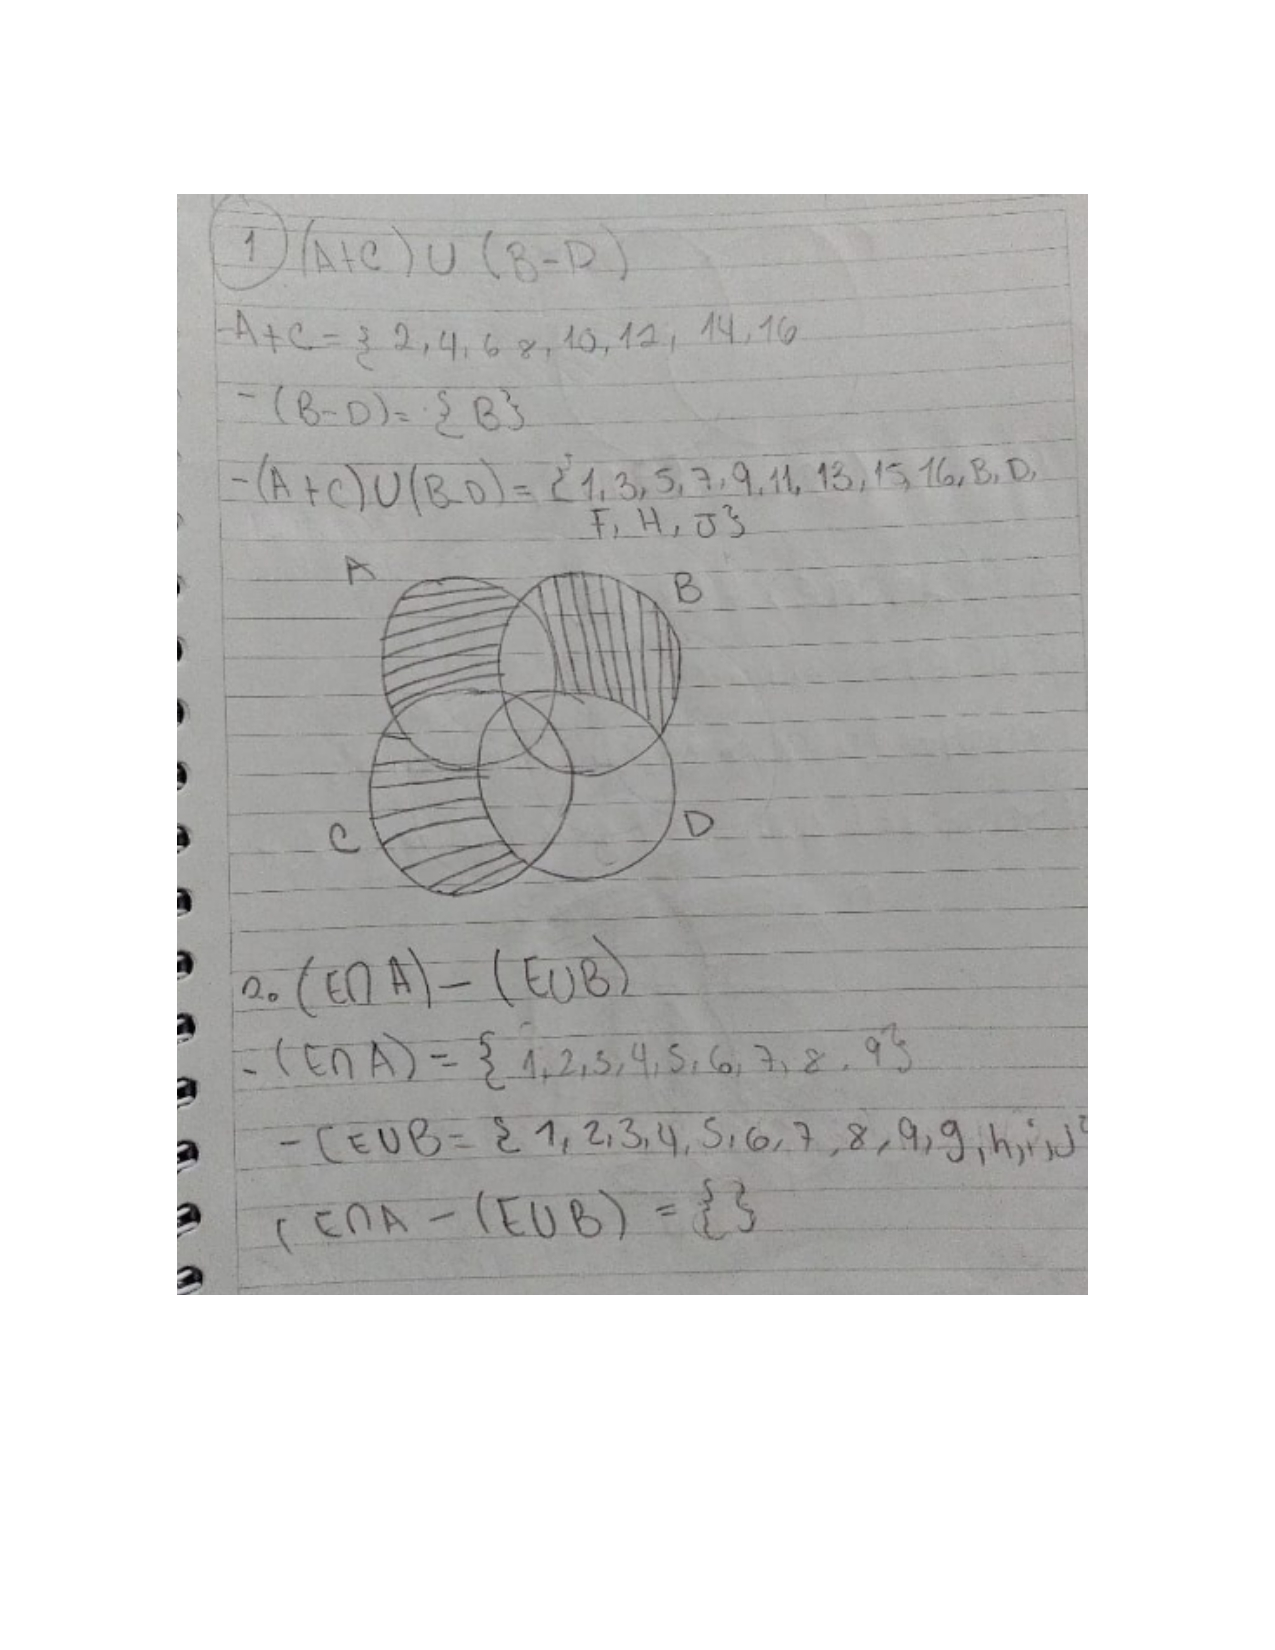 1 (A+C) U (B-D)
-A+C = { 2, 4, 6 8, 10, 12, 14, 16
- (B-D) = { B}
- (A+C) U (B-D) = { 1, 3, 5, 7, 9, 11, 13, 15, 16, B, D,
F, H, J}
A
B
C
D
2. (E∩A) - (EUB)
- (E∩A) = { 1, 2, 3, 4, 5, 6, 7, 8, 9}
- (EUB = { 1, 2, 3, 4, 5, 6, 7, 8, 9, g, h, i, J}
( E∩A - (EUB) = { }